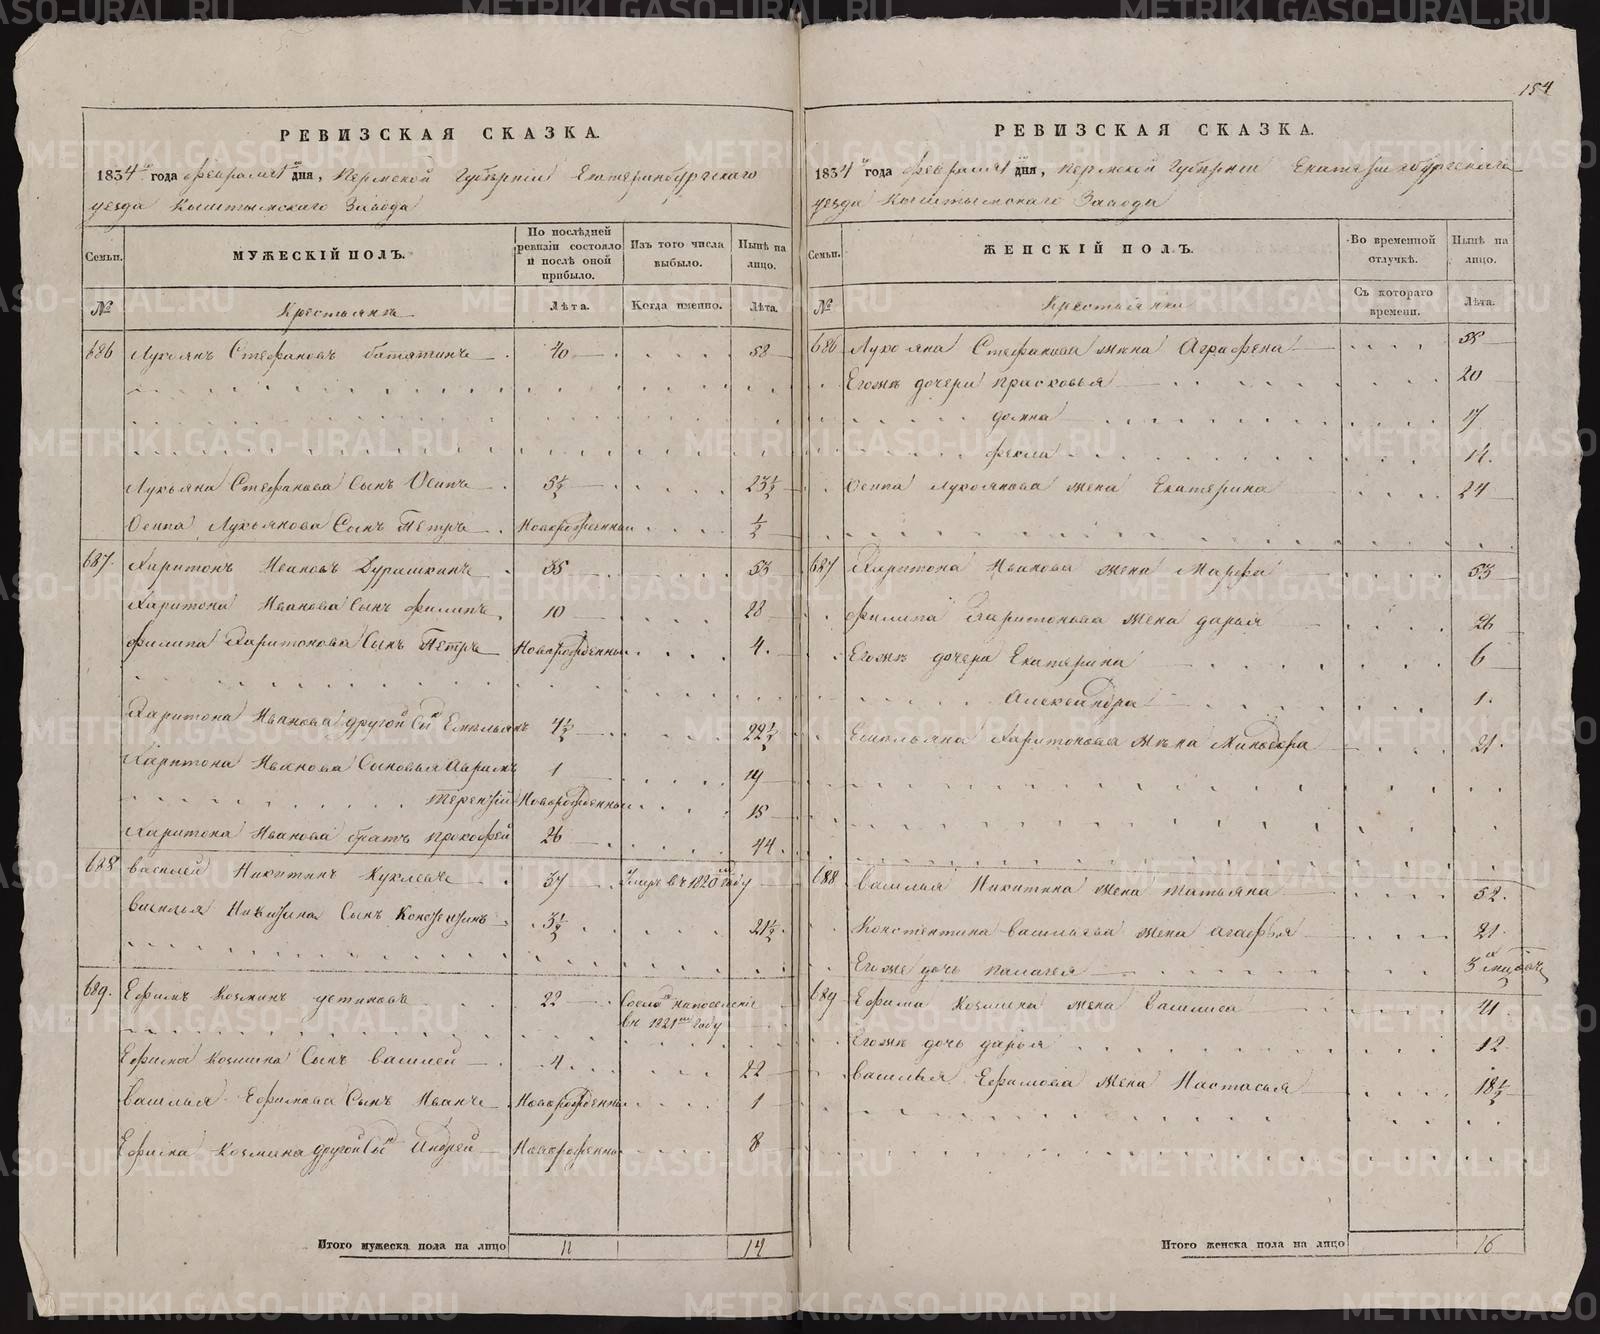 154
РЕВИЗСКАЯ СКАЗКА.
1834го года февраля 1го дня, Пермской Губернiи Екатеринбургскаго
уезда Кыштымскаго Завода
Семьи.
МУЖЕСКIЙ ПОЛЪ.
По послѣдней ревизiи состояло и послѣ оной прибыло.
Изъ того числа выбыло.
Нынѣ на лицо.
№
Крестьяне
Лѣта.
Когда именно.
Лѣта.
686 Лукоянъ Стефановъ 40 58
Лукьяна Стефанова Сынъ Осипъ 5½ 23½
Осипа Лукьянова Сынъ Петръ Новорожденный ½
687. Харитонъ Ивановъ Дурашкинъ 35 53
Харитона Иванова Сынъ филипъ 10 28
филипа Харитонова Сынъ Петръ Новорожденный 4.
Харитона Иванова другой Сынъ Емельянъ 4½ 22½
Харитона Иванова Сыновья Аврамъ 1 19
Терентiй Новорожденный 15
Харитона Иванова братъ прокофей 26 44
688 василей Никитинъ Куклевъ 37 Умре въ 1820м году
василья Никитина Сынъ Констентинъ 3½ 21½
689. Ефимъ Козминъ устиновъ 22 Сосланъ на поселенiе
въ 1821м году
Ефима Козмина Сынъ василей 4 22
василья Ефимова Сынъ Иванъ Новорожденный 1
Ефима Козмина другой Сынъ Андрей Новорожденный 8
Итого мужеска пола на лицо 11 14
РЕВИЗСКАЯ СКАЗКА.
1834го года февраля 1го дня, Пермской Губернiи Екатеринбургскаго
уезда Кыштымскаго Завода
Семьи.
ЖЕНСКIЙ ПОЛЪ.
Во временной отлучкѣ.
Нынѣ на лицо.
№
Крестьянки
Съ котораго времени.
Лѣта.
686 Лукояна Стефанова жена Аграфена 58
Егоже дочери прасковья 20
домна 17
фекла 14.
Осипа Лукоянова жена Екатерина 24
687 Харитона Иванова жена Марфа 53
филипа Харитонова жена дарья 26
Егоже дочери Екатерина 6
Александра 1.
Емельяна Харитонова жена 21.
688 василья Никитина жена татьяна 52.
Констентина васильева жена агафья 21.
Егоже дочь палагея 3хъ
689 Ефима Козмина жена василиса 41
Егоже дочь дарья 12
василья Ефимова жена Настасья 18½
Итого женска пола на лицо 16
METRIKI.GASO-URAL.RU